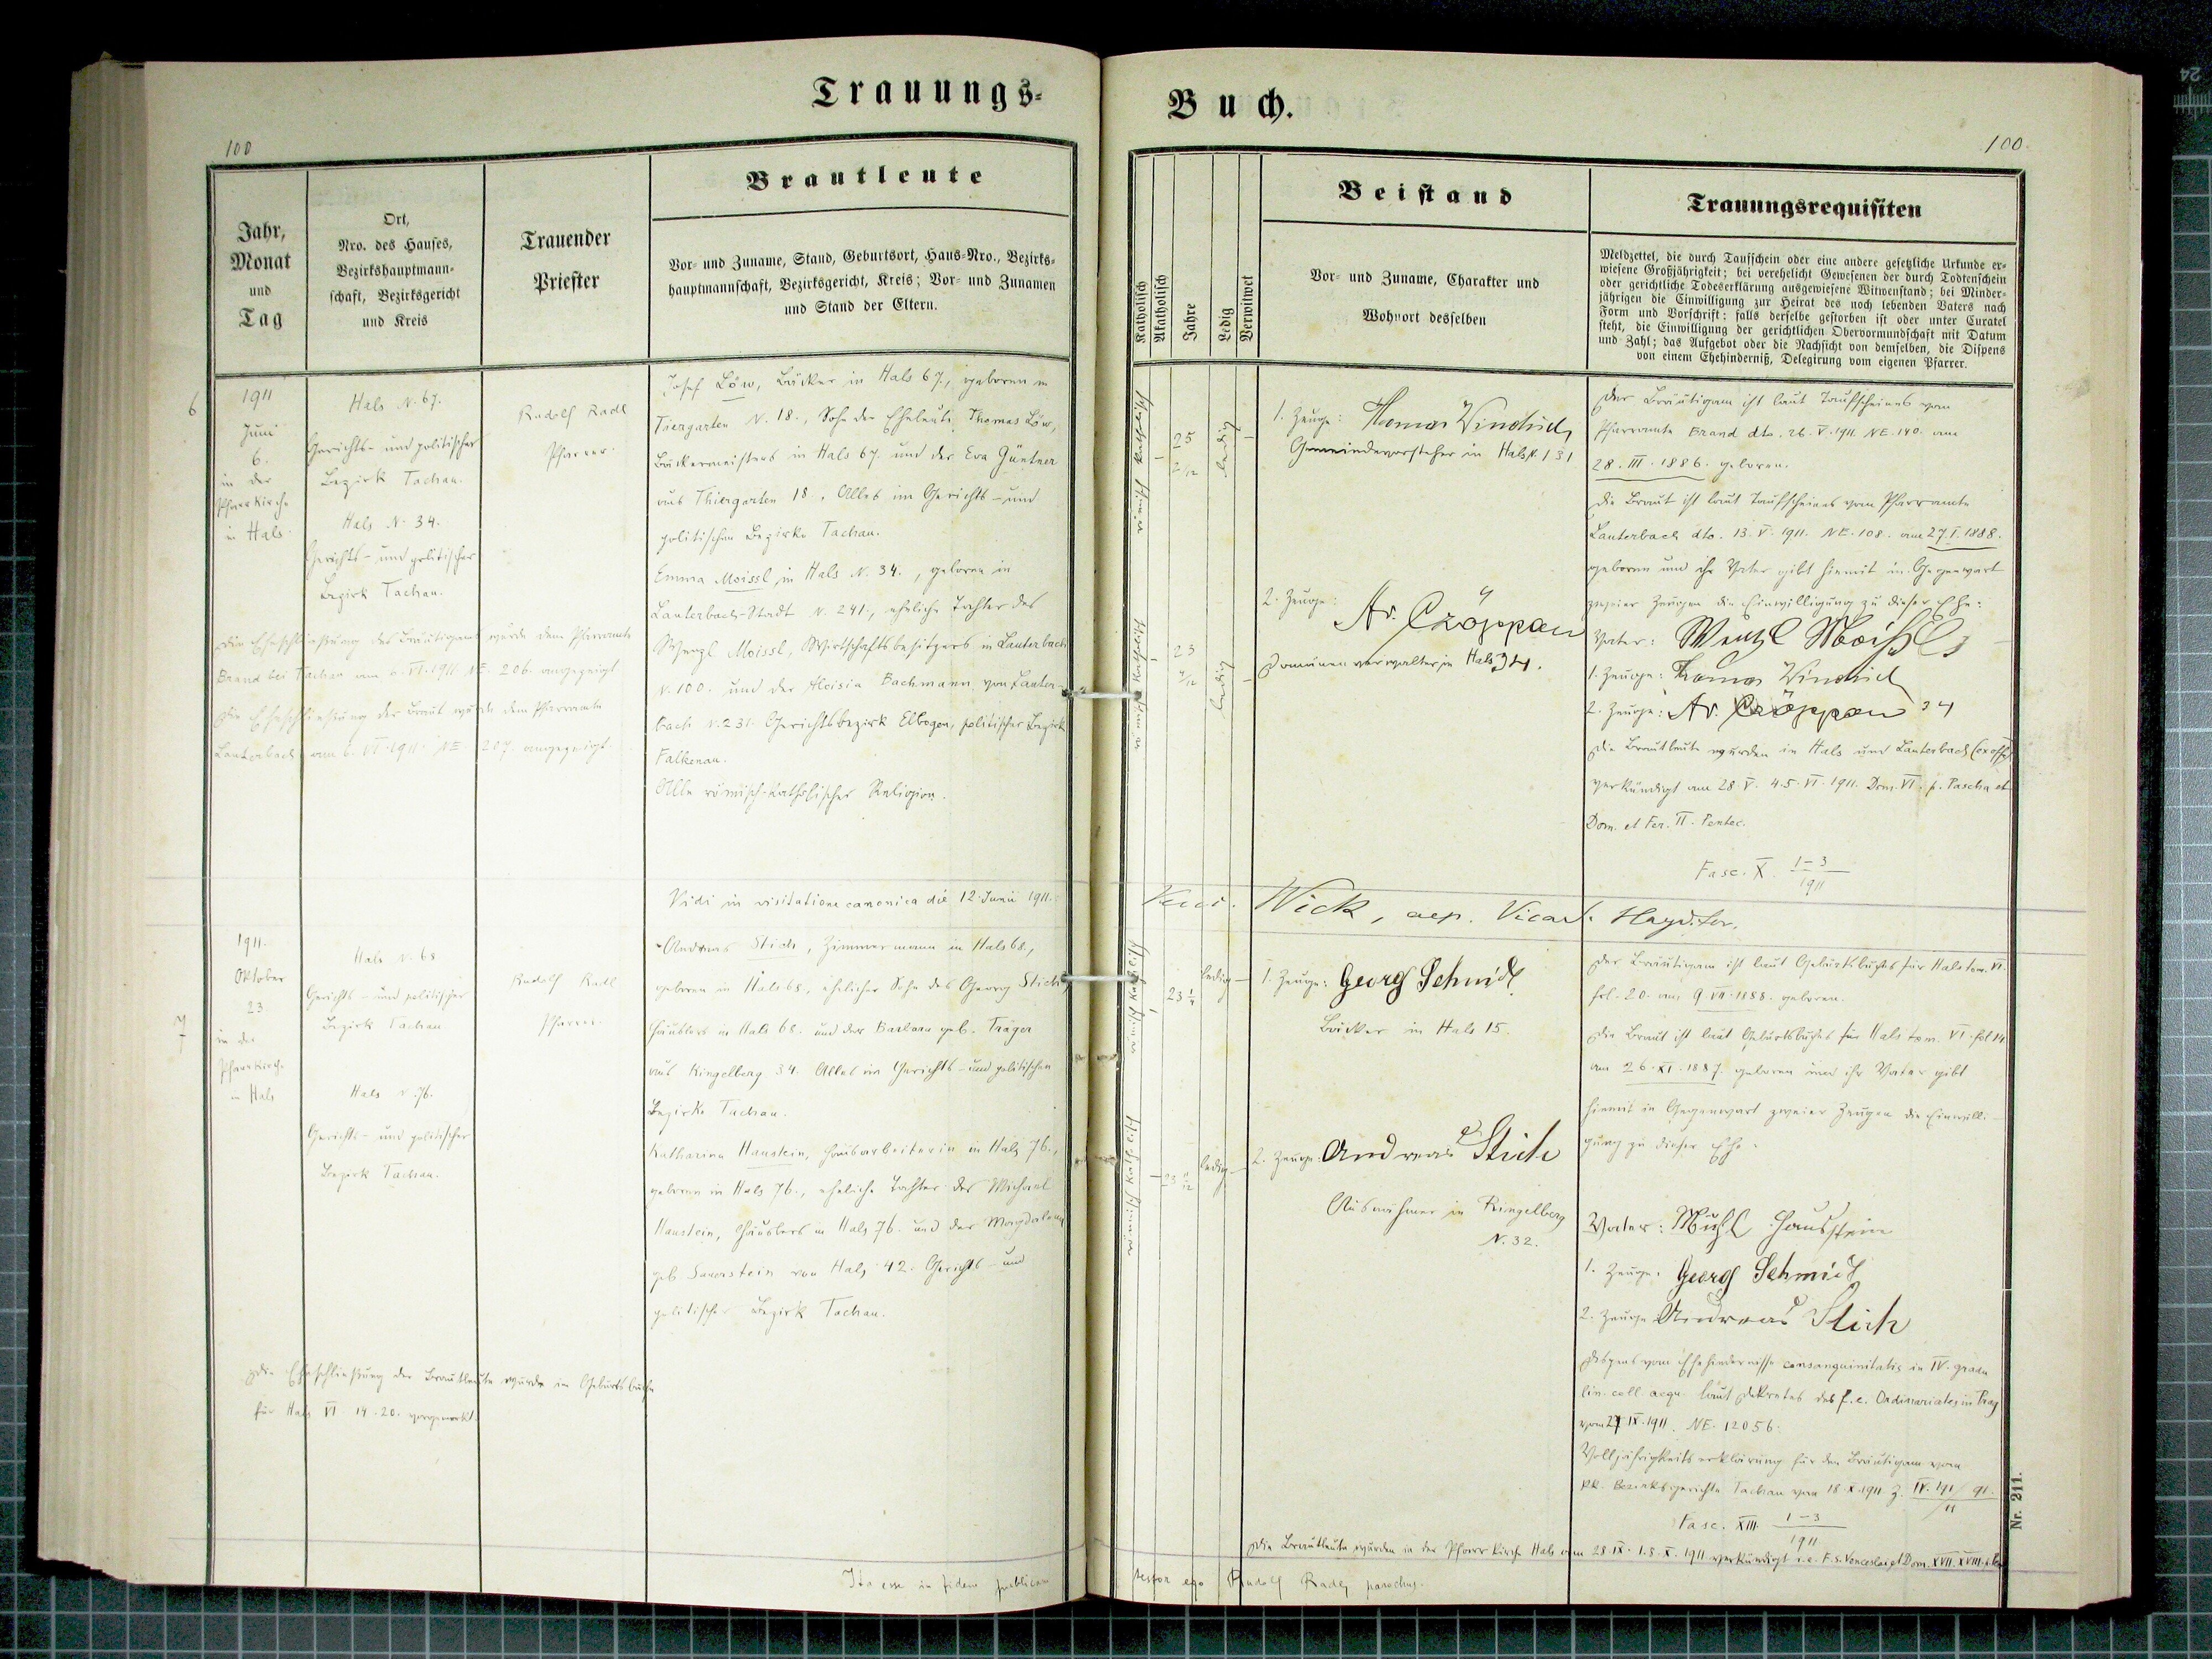 Trauungs-
100
Jahr,
Monat
und
Tag
Ort,
Nro. des Hauses,
Bezirkshauptmann-
schaft, Bezirksgericht
und Kreis
Trauender
Priester
Brautleute
Vor- und Zuname, Stand, Geburtsort, Haus-Nro., Bezirks-
hauptmannschaft, Bezirksgericht, Kreis; Vor- und Zunamen
und Stand der Eltern.
6
1911
Juni
6.
in der
Pfarrkirche
in Hals
Hals N. 67.
Gerichts- und politischer
Bezirk Tachau.
Hals N. 34.
Gerichts- und politischer
Bezirk Tachau.
Rudolf Radl
Pfarrer
Josef Löw, Bäcker in Hals 67., geboren in
Tiergarten N. 18., Sohn der Eheleute Thomas Löw,
Bäckermeisters in Hals 67. und der Eva Güntner
aus Thiergarten 18., Alles im Gerichts- und
politischen Bezirke Tachau.
Emma Moissl in Hals N. 34., geboren in
Lauterbach-Stadt N. 241., eheliche Tochter des
Wenzl Moissl, Wirtschaftsbesitzers in Lauterbach
N. 100. und der Aloisia Bachmann von Lauter-
bach N. 231. Gerichtsbezirk Elbogen, politischer Bezirk
Falkenau.
Alle römisch-katholischer Religion.
Die Eheschließung des Bräutigams wurde dem Pfarramte
Brand bei Tachau am 6. VI. 1911. NE. 206. angezeigt
Die Eheschließung der Braut wurde dem Pfarramte
Lauterbach am 6. VI. 1911. NE. 207. angezeigt.
Vidi in visitatione canonica die 12. Junii 1911.
7
1911.
Oktober
23
in der
Pfarrkirche
in Hals
Hals N. 68
Gerichts- und politischer
Bezirk Tachau
Hals N. 76.
Gerichts- und politischer
Bezirk Tachau.
Rudolf Radl
Pfarrer.
Andreas Stich, Zimmermann in Hals 68.,
geboren in Hals 68., ehelicher Sohn des Georg Stich,
Häuslers in Hals 68. und der Barbara geb. Träger
aus Ringelberg 34. Alles im Gerichts- und politischen
Bezirke Tachau.
Katharina Haustein, Hausarbeiterin in Hals 76.,
geboren in Hals 76., eheliche Tochter des Michael
Haustein, Häuslers in Hals 76. und der Magdalena
geb. Sauerstein von Hals 42. Gerichts- und
politischer Bezirk Tachau.
Die Eheschließung der Brautleute wurde im Geburtsbuche
für Hals VI 14. 20. vorgemerkt.
Ita esse in fidem publicam
Buch.
100.
Katholisch
Akatholisch
Jahre
Ledig
Verwitwet
Beistand
Vor- und Zuname, Charakter und
Wohnort desselben
Trauungsrequisiten
Meldzettel, die durch Taufschein oder eine andere gesetzliche Urkunde er-
wiesene Großjährigkeit; bei verehelicht Gewesenen der durch Todtenschein
oder gerichtliche Todeserklärung ausgewiesene Witwenstand; bei Minder-
jährigen die Einwilligung zur Heirat des noch lebenden Vaters nach
Form und Vorschrift: falls derselbe gestorben ist oder unter Curatel
steht, die Einwilligung der gerichtlichen Obervormundschaft mit Datum
und Zahl; das Aufgebot oder die Nachsicht von demselben, die Dispens
von einem Ehehinderniß, Delegirung vom eigenen Pfarrer.
römisch katholisch
25 2/12
ledig
1. Zeuge:
Gemeindevorsteher in Hals N. 131
römisch katholisch
23 4/12
ledig
2. Zeuge:
Domänenverwalter in Hals 34.
Der Bräutigam ist laut Taufscheines vom
Pfarramte Brand dto. 26. V. 1911. NE. 140. am
28. III. 1886. geboren.
Die Braut ist laut Taufscheines vom Pfarramte
Lauterbach dto. 13. V. 1911. NE. 108. am 27. I. 1888.
geboren und ihr Vater gibt hiemit in Gegenwart
zweier Zeugen die Einwilligung zu dieser Ehe:
Vater: Wenzl Moißl
1. Zeuge:
2. Zeuge: 34
Die Brautleute wurden in Hals und Lauterbach (ex offo)
verkündigt am 28. V. 4. 5. VI. 1911. Dom. VI. p. Pascha et
Dom. et Fer. II. Pentec.
Fasc. X. 1-3/1911
Wick, aep. Vicar.
römisch katholisch
23 1/4
ledig
1. Zeuge: Georg Schmidt
Bäcker in Hals 15.
römisch katholisch
23 11/12
ledig
2. Zeuge: Andreas Stich
Ausnahmer in Ringelberg
N. 32.
Der Bräutigam ist laut Geburtsbuches für Hals tom. VI.
fol. 20. am 9. VII. 1888. geboren.
Die Braut ist laut Geburtsbuches für Hals tom. VI. fol. 14
am 26. XI. 1887. geboren und ihr Vater gibt
hiemit in Gegenwart zweier Zeugen die Einwilli-
gung zu dieser Ehe.
Vater: Haustein
1. Zeuge: Georg Schmidt
2. Zeuge Andreas Stich
Dispens vom Ehehindernisse consanguinitatis in IV. gradu
lin. coll. aequ. laut Dekretes des f. e. Ordinariates in Prag
vom 27. IX. 1911. NE. 12056.
Volljährigkeitserklärung für den Bräutigam vom
kk. Bezirksgerichte Tachau vom 18. X. 1911 Z. IV. 191/11
Fasc. XIII. 1-3/1911
Die Brautleute wurden in der Pfarrkirche Hals am 28. IX. 1. 8. X. 1911 verkündigt i. e. F. s. Venceslai, et Dom. XVII. XVIII.
testor ego Rudolf Radl, parochus.
Nr. 211.